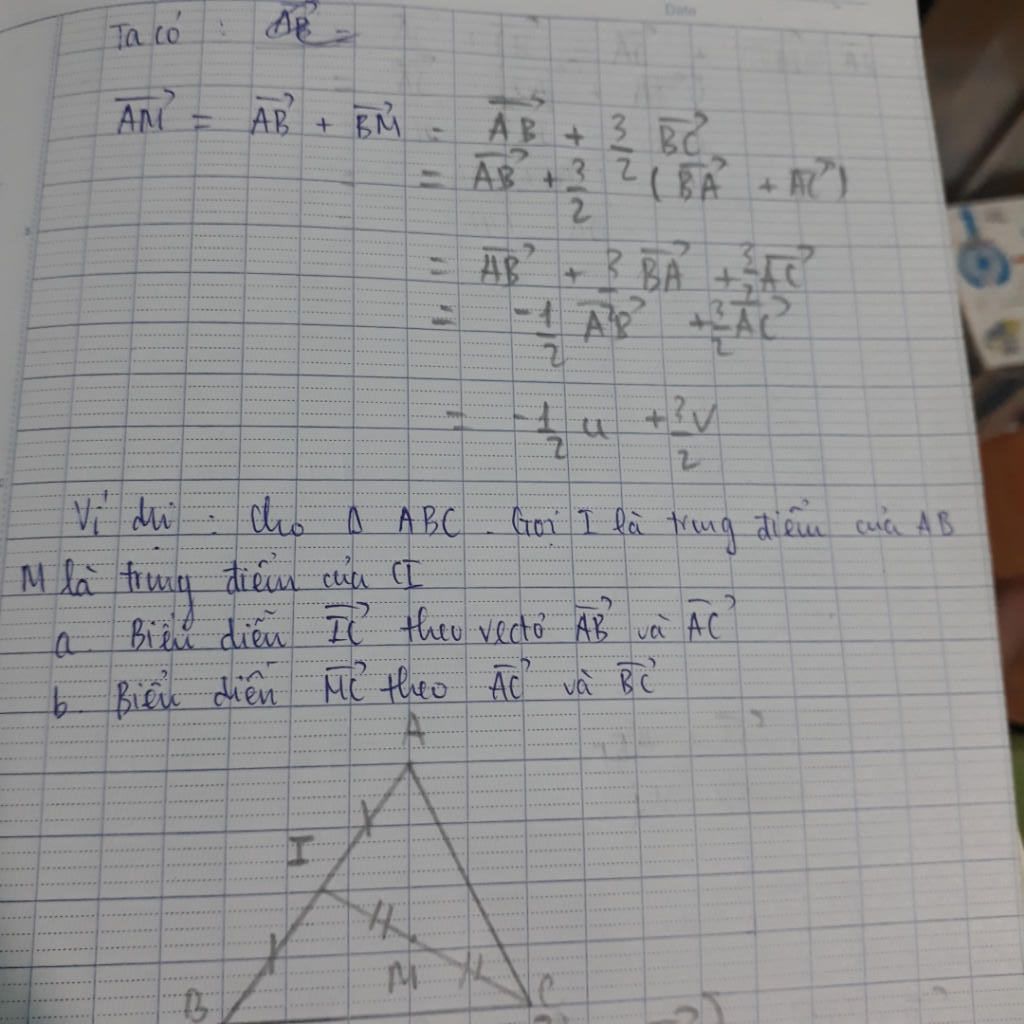 Date
Ta có : AB⃗ =
AM⃗ = AB⃗ + BM⃗ = AB⃗ + 3/2 BC⃗
= AB⃗ + 3/2 (BA⃗ + AC⃗)
= AB⃗ + 3/2 BA⃗ + 3/2 AC⃗
= -1/2 AB⃗ + 3/2 AC⃗
= -1/2 u + 3/2 v
Ví dụ : Cho Δ ABC. Gọi I là trung điểm của AB
M là trung điểm của CI
a. Biểu diễn IC⃗ theo vectơ AB⃗ và AC⃗
b. Biểu diễn MC⃗ theo AC⃗ và BC⃗
A
I
M
B C